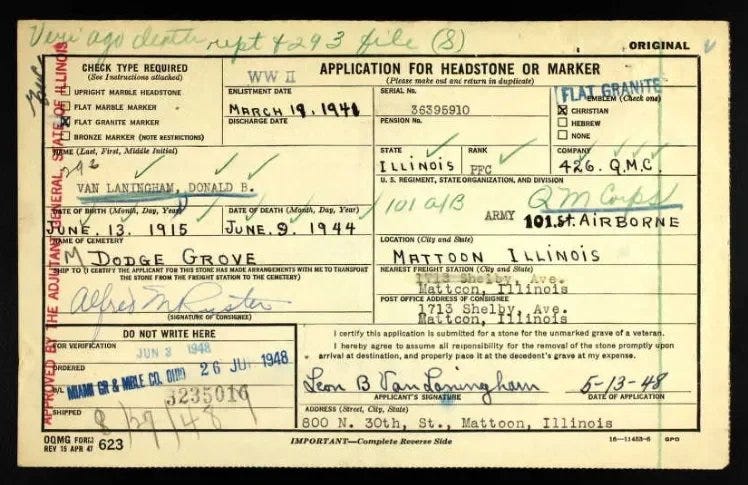 Veri ago death rept 4293 file (8)
ORIGINAL
CHECK TYPE REQUIRED
(See Instructions attached)
UPRIGHT MARBLE HEADSTONE
FLAT MARBLE MARKER
FLAT GRANITE MARKER
BRONZE MARKER (NOTE RESTRICTIONS)
WW II
ENLISTMENT DATE
MARCH 19, 1941
DISCHARGE DATE
APPLICATION FOR HEADSTONE OR MARKER
(Please make out and return in duplicate)
SERIAL No.
36395910
PENSION No.
FLAT GRANITE
EMBLEM (Check one)
CHRISTIAN
HEBREW
NONE
NAME (Last, First, Middle Initial)
VAN LANINGHAM, DONALD B.
STATE
ILLINOIS
RANK
PFC
COMPANY
426. Q.M.C.
U. S. REGIMENT, STATE ORGANIZATION, AND DIVISION
101 A/B
QM Corps
ARMY 101.St. AIRBORNE
DATE OF BIRTH (Month, Day, Year)
JUNE. 13. 1915
DATE OF DEATH (Month, Day, Year)
JUNE. 9. 1944
NAME OF CEMETERY
DODGE GROVE
LOCATION (City and State)
MATTOON ILLINOIS
SHIP TO (I CERTIFY THE APPLICANT FOR THIS STONE HAS MADE ARRANGEMENTS WITH ME TO TRANSPORT
THE STONE FROM THE FREIGHT STATION TO THE CEMETERY)
(SIGNATURE OF CONSIGNEE)
NEAREST FREIGHT STATION (City and State)
1713 Shelby, Ave.
Mattoon, Illinois
POST OFFICE ADDRESS OF CONSIGNEE
1713 Shelby, Ave.
Mattoon, Illinois
DO NOT WRITE HERE
FOR VERIFICATION
JUN 3 1948
ORDERED
26 JUL 1948
MIAMI GR & MBLE CO. OHIO
B/L
3235016
SHIPPED
8/27/48
I certify this application is submitted for a stone for the unmarked grave of a veteran.
I hereby agree to assume all responsibility for the removal of the stone promptly upon
arrival at destination, and properly place it at the decedent's grave at my expense.
Leon B Van Laningham
5-13-48
APPLICANT'S SIGNATURE
DATE OF APPLICATION
ADDRESS (Street, City, State)
800 N. 30th, St., Mattoon, Illinois
OQMG FORM 623
REV 15 APR 47
IMPORTANT—Complete Reverse Side
16—11453-6 GPO
APPROVED BY THE ADJUTANT GENERAL, STATE OF ILLINOIS